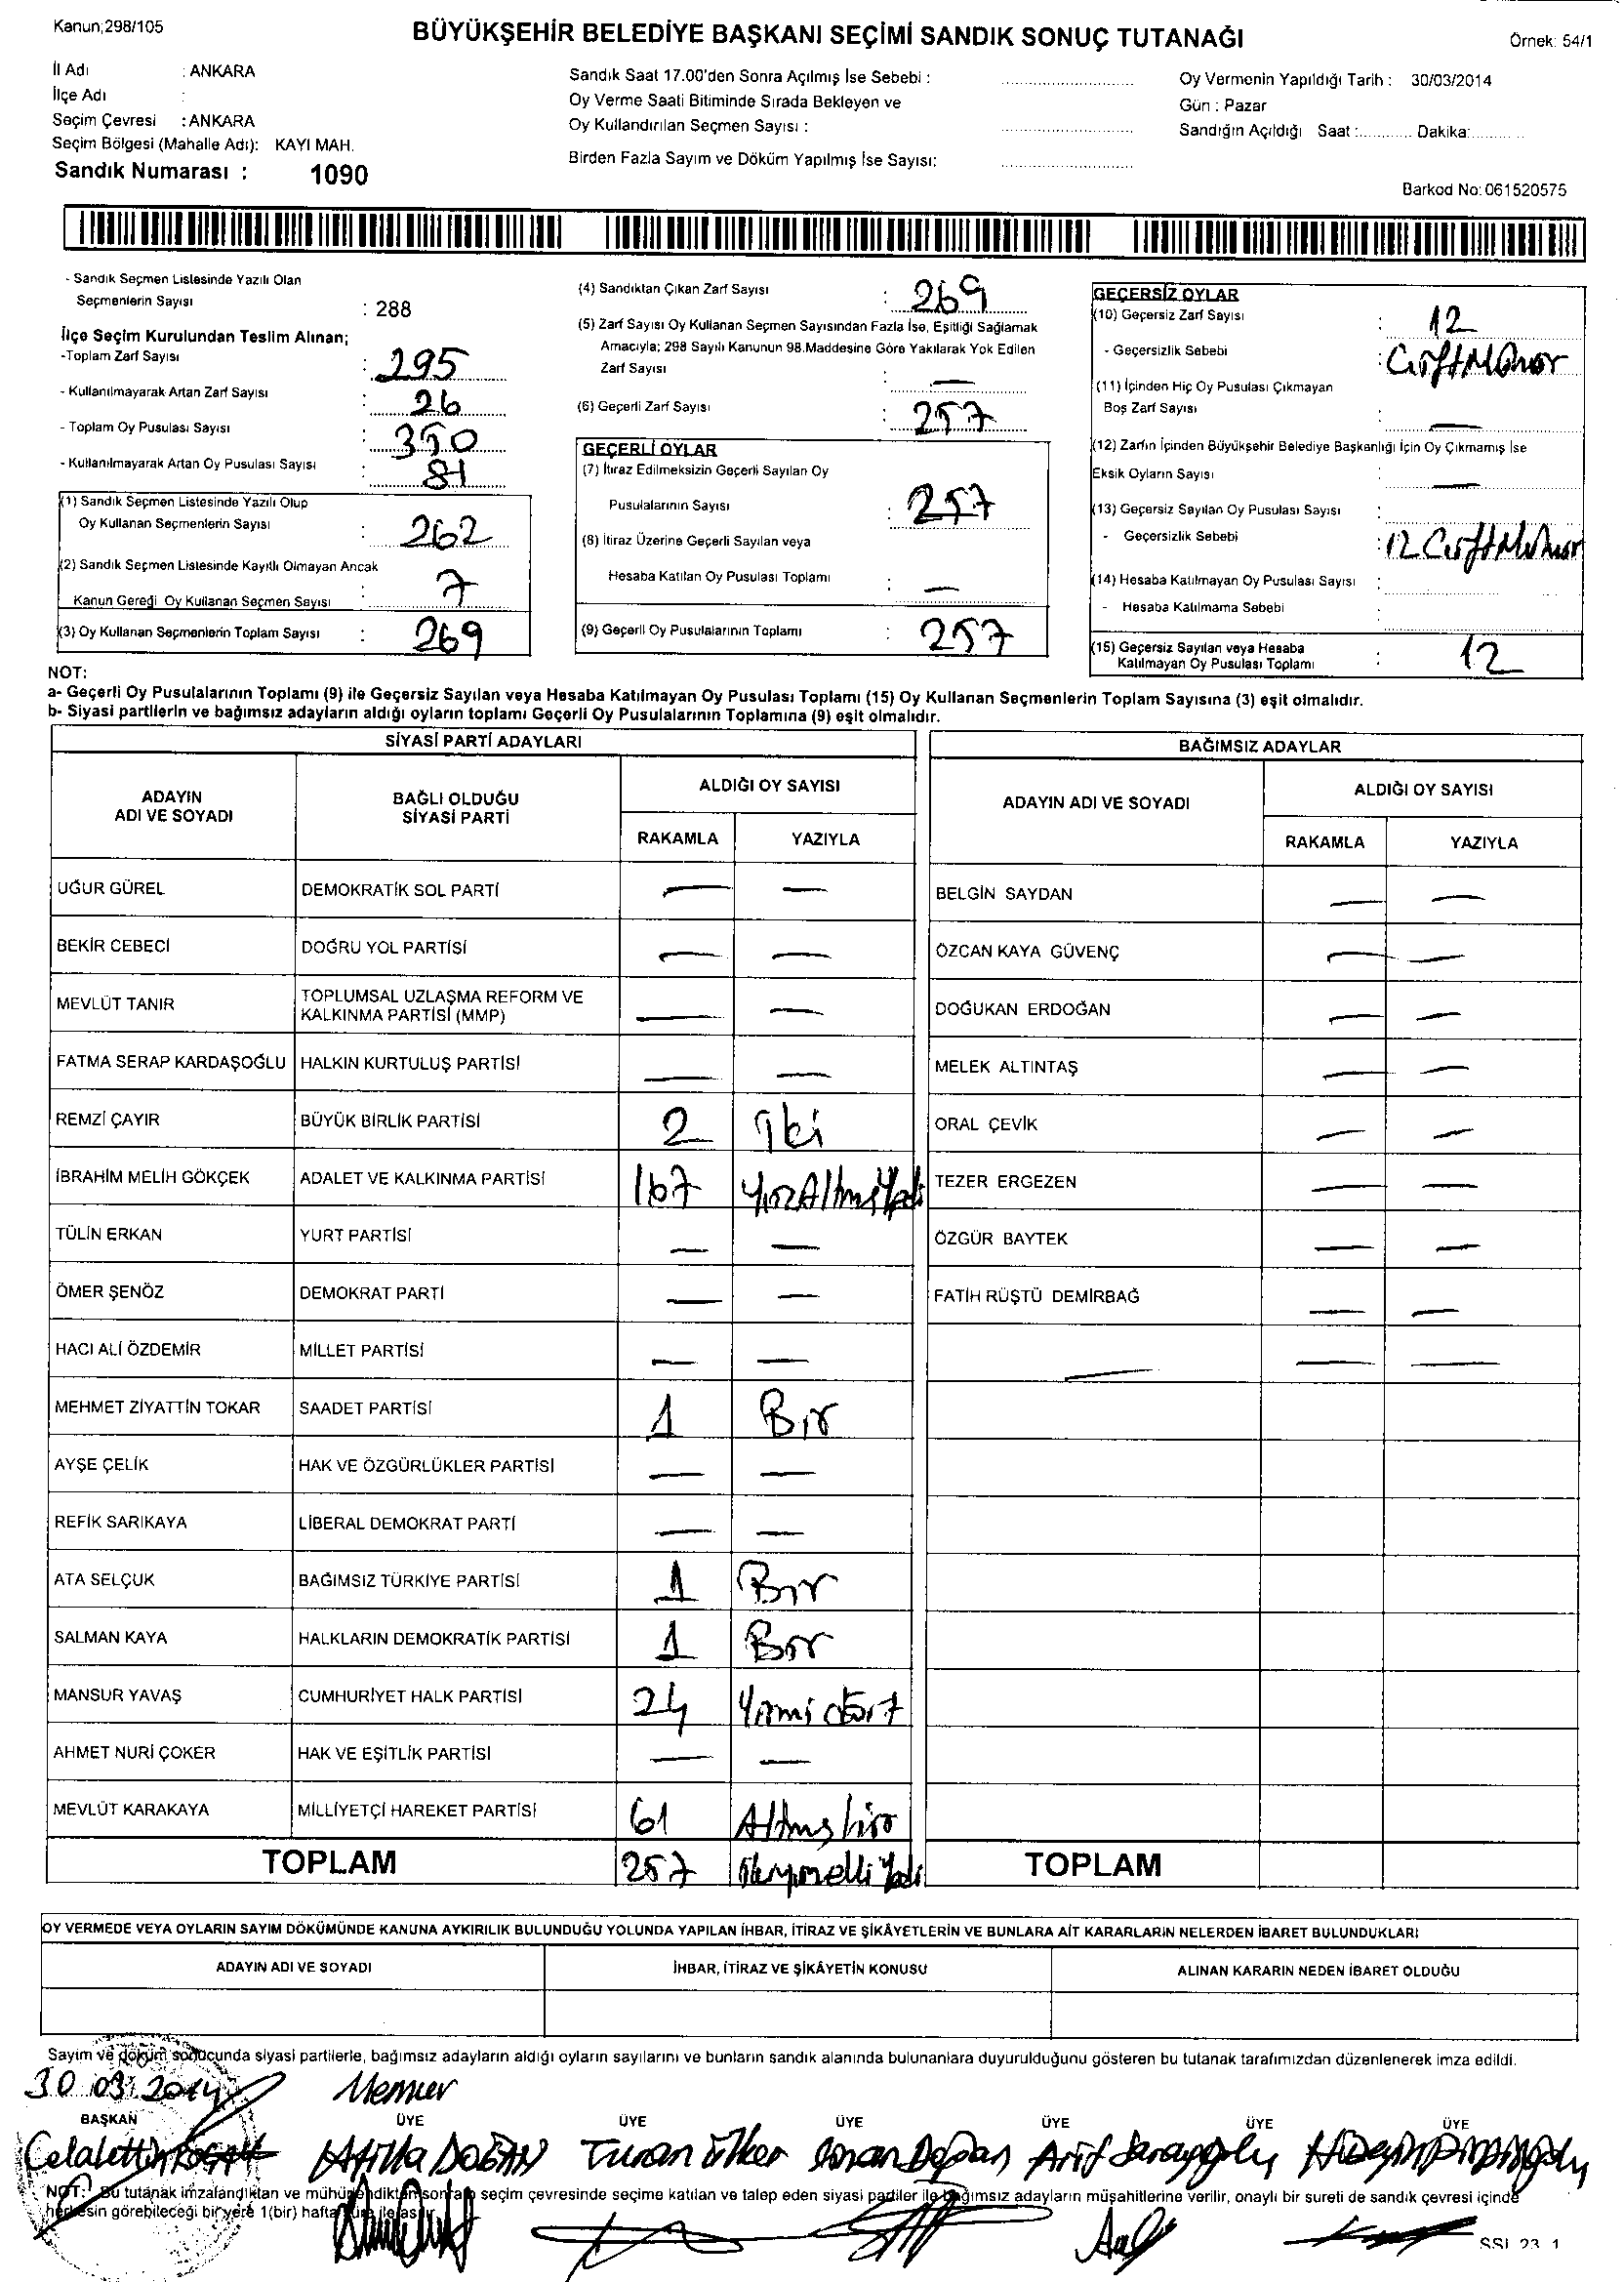 Kanun;298/105
BÜYÜKŞEHİR BELEDİYE BAŞKANI SEÇİMİ SANDIK SONUÇ TUTANAĞI
Örnek: 54/1
İl Adı : ANKARA
İlçe Adı :
Seçim Çevresi : ANKARA
Seçim Bölgesi (Mahalle Adı): KAYI MAH.
Sandık Numarası : 1090
Sandık Saat 17.00'den Sonra Açılmış İse Sebebi :
Oy Verme Saati Bitiminde Sırada Bekleyen ve
Oy Kullandırılan Seçmen Sayısı :
Birden Fazla Sayım ve Döküm Yapılmış İse Sayısı:
Oy Vermenin Yapıldığı Tarih : 30/03/2014
Gün : Pazar
Sandığın Açıldığı Saat :............ Dakika:............
Barkod No: 061520575
- Sandık Seçmen Listesinde Yazılı Olan
Seçmenlerin Sayısı : 288
İlçe Seçim Kurulundan Teslim Alınan;
-Toplam Zarf Sayısı : 295
- Kullanılmayarak Artan Zarf Sayısı : 26
- Toplam Oy Pusulası Sayısı : 350
- Kullanılmayarak Artan Oy Pusulası Sayısı : 81
(1) Sandık Seçmen Listesinde Yazılı Olup
Oy Kullanan Seçmenlerin Sayısı : 262
(2) Sandık Seçmen Listesinde Kayıtlı Olmayan Ancak
Kanun Gereği Oy Kullanan Seçmen Sayısı : 7
(3) Oy Kullanan Seçmenlerin Toplam Sayısı : 269
(4) Sandıktan Çıkan Zarf Sayısı : 269
(5) Zarf Sayısı Oy Kullanan Seçmen Sayısından Fazla İse, Eşitliği Sağlamak
Amacıyla; 298 Sayılı Kanunun 98.Maddesine Göre Yakılarak Yok Edilen
Zarf Sayısı : —
(6) Geçerli Zarf Sayısı : 257
GEÇERLİ OYLAR
(7) İtiraz Edilmeksizin Geçerli Sayılan Oy
Pusulalarının Sayısı : 257
(8) İtiraz Üzerine Geçerli Sayılan veya
Hesaba Katılan Oy Pusulası Toplamı : —
(9) Geçerli Oy Pusulalarının Toplamı : 257
GEÇERSİZ OYLAR
(10) Geçersiz Zarf Sayısı : 12
- Geçersizlik Sebebi :
(11) İçinden Hiç Oy Pusulası Çıkmayan
Boş Zarf Sayısı : —
(12) Zarfın İçinden Büyükşehir Belediye Başkanlığı İçin Oy Çıkmamış İse
Eksik Oyların Sayısı : —
(13) Geçersiz Sayılan Oy Pusulası Sayısı :
- Geçersizlik Sebebi : 12
(14) Hesaba Katılmayan Oy Pusulası Sayısı :
- Hesaba Katılmama Sebebi :
(15) Geçersiz Sayılan veya Hesaba
Katılmayan Oy Pusulası Toplamı : 12
NOT:
a- Geçerli Oy Pusulalarının Toplamı (9) ile Geçersiz Sayılan veya Hesaba Katılmayan Oy Pusulası Toplamı (15) Oy Kullanan Seçmenlerin Toplam Sayısına (3) eşit olmalıdır.
b- Siyasi partilerin ve bağımsız adayların aldığı oyların toplamı Geçerli Oy Pusulalarının Toplamına (9) eşit olmalıdır.
SİYASİ PARTİ ADAYLARI
ADAYIN ADI VE SOYADI
BAĞLI OLDUĞU SİYASİ PARTİ
ALDIĞI OY SAYISI
RAKAMLA YAZIYLA
UĞUR GÜREL DEMOKRATİK SOL PARTİ — —
BEKİR CEBECİ DOĞRU YOL PARTİSİ — —
MEVLÜT TANIR TOPLUMSAL UZLAŞMA REFORM VE KALKINMA PARTİSİ (MMP) — —
FATMA SERAP KARDAŞOĞLU HALKIN KURTULUŞ PARTİSİ — —
REMZİ ÇAYIR BÜYÜK BİRLİK PARTİSİ 2 iki
İBRAHİM MELİH GÖKÇEK ADALET VE KALKINMA PARTİSİ 167 YüzAltmışYedi
TÜLİN ERKAN YURT PARTİSİ — —
ÖMER ŞENÖZ DEMOKRAT PARTİ — —
HACI ALİ ÖZDEMİR MİLLET PARTİSİ — —
MEHMET ZİYATTİN TOKAR SAADET PARTİSİ 1 Bir
AYŞE ÇELİK HAK VE ÖZGÜRLÜKLER PARTİSİ — —
REFİK SARIKAYA LİBERAL DEMOKRAT PARTİ — —
ATA SELÇUK BAĞIMSIZ TÜRKİYE PARTİSİ 1 Bir
SALMAN KAYA HALKLARIN DEMOKRATİK PARTİSİ 1 Bir
MANSUR YAVAŞ CUMHURİYET HALK PARTİSİ 24 Yirmi dört
AHMET NURİ ÇOKER HAK VE EŞİTLİK PARTİSİ — —
MEVLÜT KARAKAYA MİLLİYETÇİ HAREKET PARTİSİ 61 Altmış bir
TOPLAM 257 İkiyüzelli Yedi
BAĞIMSIZ ADAYLAR
ADAYIN ADI VE SOYADI
ALDIĞI OY SAYISI
RAKAMLA YAZIYLA
BELGİN SAYDAN — —
ÖZCAN KAYA GÜVENÇ — —
DOĞUKAN ERDOĞAN — —
MELEK ALTINTAŞ — —
ORAL ÇEVİK — —
TEZER ERGEZEN — —
ÖZGÜR BAYTEK — —
FATİH RÜŞTÜ DEMİRBAĞ — —
— — —
TOPLAM
OY VERMEDE VEYA OYLARIN SAYIM DÖKÜMÜNDE KANUNA AYKIRILIK BULUNDUĞU YOLUNDA YAPILAN İHBAR, İTİRAZ VE ŞİKÂYETLERİN VE BUNLARA AİT KARARLARIN NELERDEN İBARET BULUNDUKLARI
ADAYIN ADI VE SOYADI İHBAR, İTİRAZ VE ŞİKÂYETİN KONUSU ALINAN KARARIN NEDEN İBARET OLDUĞU
Sayım ve döküm sonucunda siyasi partilerle, bağımsız adayların aldığı oyların sayılarını ve bunların sandık alanında bulunanlara duyurulduğunu gösteren bu tutanak tarafımızdan düzenlenerek imza edildi.
30.03.2014 Memur
BAŞKAN ÜYE ÜYE ÜYE ÜYE ÜYE ÜYE
Celalettin Atilla DOĞAN Turan ülker Sinan Doğan Arif
NOT: Bu tutanak imzalandıktan ve mühürlendikten sonra seçim çevresinde seçime katılan ve talep eden siyasi partiler ile bağımsız adayların müşahitlerine verilir, onaylı bir sureti de sandık çevresi içinde
herkesin görebileceği bir yere 1(bir) hafta süre ile asılır.
SSI 23 1